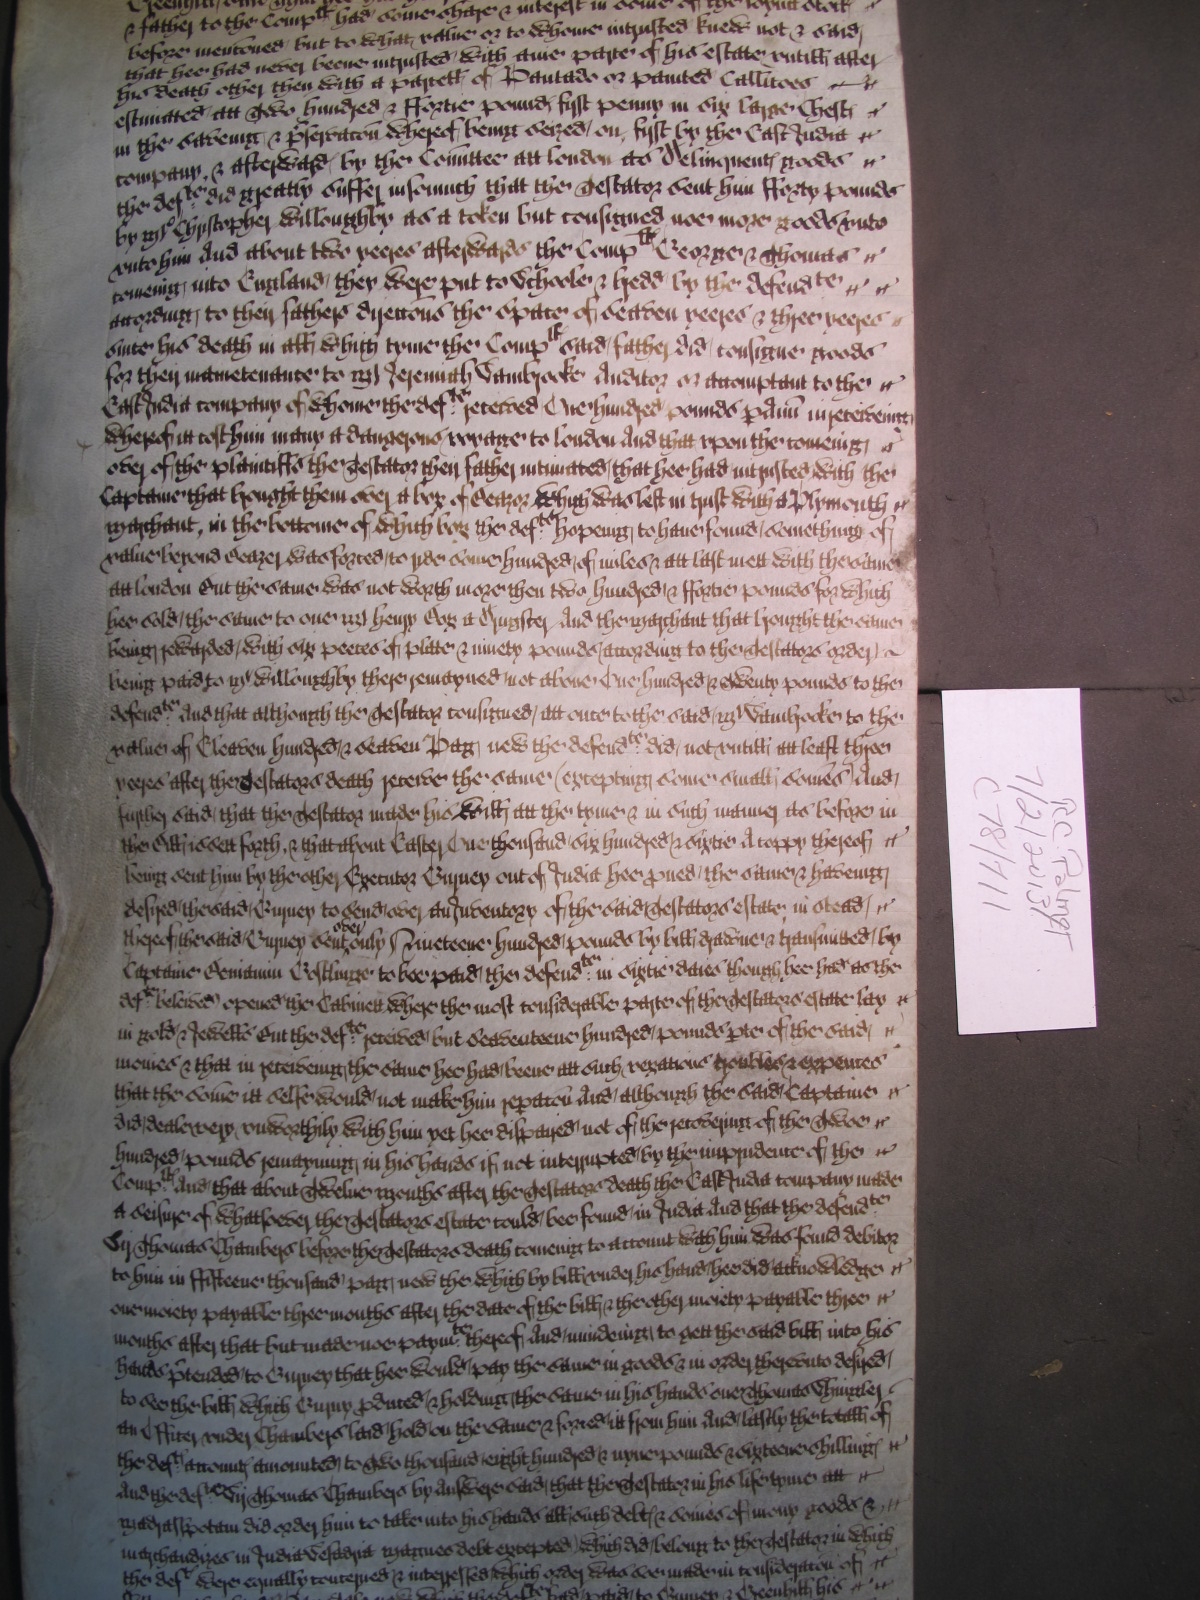 & father to the Comp^lts had some share & interest in some of the
before mentioned but to what value or to whome intrusted knew not & said
that hee had never beene intrusted with anie parte of his estate untill after
his death other then with a parcell of Pantado or painted Callicoes
estimated att Two hundred & ffortie pounds first penny in six large Chests
in the saveing & p'servacon whereof being seized on first by the East India
company & afterwards by the Comittee att London as Delinquents goods
the def^te did greatly suffer insomuch that the Testator sent him fforty pounds
by M^r Christopher Willoughby as a token but consigned noe more goods unto
unto him And about two yeeres afterwards the Comp^lts George & Thomas
comeing into England they were put to Schoole & bredd by the defend^te
according to their fathers direccons the space of Seaven yeeres & three yeeres
since his death in all which tyme the Comp^lts said father did consigne goods
for their mainetenance to M^r Jeremiah Sambrooke Auditor or accomptant to the
East India company of whome the def^te received One hundred pounds p Ann in receiveing
whereof it cost him many a dangerous voyage to London And that upon the comeing
over of the plaintiffs the Testator their father intimated that hee had intrusted with the
Captaine that brought them over a box of Beazor which was left in trust with a Plymouth
marchant, in the bottome of which box the def^te hopeing to have found something of
value beyond Beazer was forced to ride some hundred of miles & att last mett with the same
att London But the same was not worth more then two hundred & ffortie pounds for which
hee sold the same to one M^r Henry Box a Drugster And the marchant that brought the same
being rewarded with six peeces of plate & ninety pounds according to the Testators order
being paid to M^r Willoughby there remayned not above One hundred & twenty pounds to the
defend^te And that although the Testator consigned att once to the said M^r Sambrooke to the
value of Eleaven hundred & Seaven Pag: new the defend^te did not untill att least three
yeeres after the Testators death receive the same (excepting some small somes) And
further said that the Testator made his Will att the tyme & in such manner as before in
the Bill is sett forth, & that about Easter One thousand six hundred & sixtie A coppy thereof
being sent him by the other Executor Gurney out of India hee pued the same & haveing
desired the said Gurney to send over an Inventory of the said Testators estate in stead
thereof the said Gurney sent over only Nineteene hundred pounds by bill drawne & transmitted by
Captaine to bee paid the defend^te in sixtie daies though hee had as the
def^te beleived opened the Cabinett where the most considerable parte of the Testators estate lay
in gold & Jewells But the def^te received but Seaventeene hundred pounds pte of the said
monies & that in receiveing the same hee had beene att such vexatious troubles & expences
that the some itt selfe would not make him reparacon And although the said Captaine
did deale very unworthily with him yet hee dispaired not of the recovering of the Twoe
hundred pounds remayning in his hands if not interrupted by the imprudence of the
Comp^lts And that about Twelve months after the Testators death the East India company made
a seisure of whatsoever the Testators estate could bee found in India And that the defend^te
S^r Thomas Chambers before the Testators death comeing to account with him was found debitor
to him in ffifteene thousand pag: new the which by bill under his hand hee did acknowledge
one moiety payable three months after the date of the bill & the other moiety payable three
months after that but made noe paym^te thereof And mindeing to gett the said bill into his
hands p'tended to Gurney that hee would pay the same in goods & in order thereunto desired
to see the bill which Gurny p'duced & holding the same in his hands one Thomas
an Officer under Chambers laid hold on the same & forced itt from him And lastly the totall of
the def^ts accompt amounted to Two thousand eight hundred & nyne pounds & sixteene shillings
And the def^te S^r Thomas Chambers by Answere said that the Testator in his life tyme att
Madraspatam did order him to take into his hands all such debts & somes of mony goods &
marchandizes in India debt excepted which did belong to the Testator in which
the def^te were equally concerned & interessed which order was soe made in consideracon of
RC Palmer
7/21/2013
C 78/711